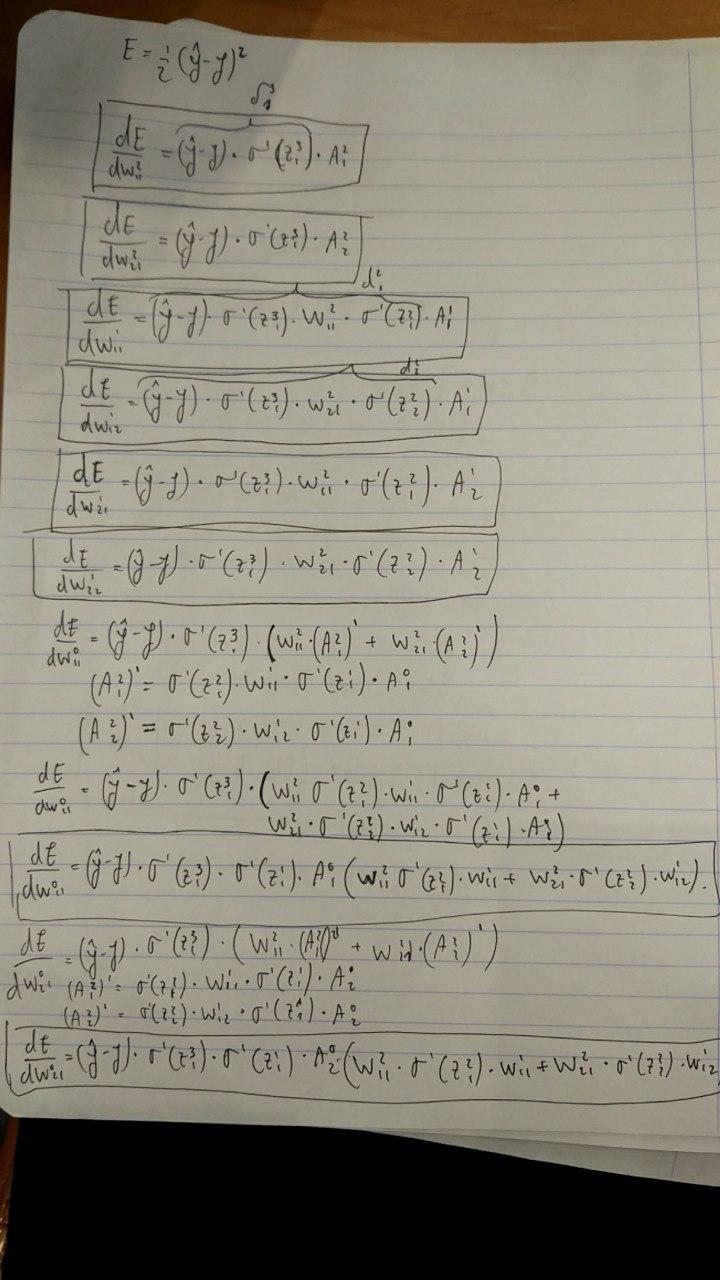 E = 1/2 (ŷ-y)²
δ₁³
dE/dw₁₁² = (ŷ-y) · σ'(z₁³) · A₁²
dE/dw₂₁² = (ŷ-y) · σ'(z₁³) · A₂²
d₁²
dE/dw₁₁¹ = (ŷ-y) · σ'(z₁³) · W₁₁² · σ'(z₁²) · A₁¹
d₂²
dE/dw₁₂¹ = (ŷ-y) · σ'(z₁³) · w₂₁² · σ'(z₂²) · A₁¹
dE/dw₂₁¹ = (ŷ-y) · σ'(z₁³) · W₁₁² · σ'(z₁²) · A₂¹
dE/dw₂₂¹ = (ŷ-y) · σ'(z₁³) · W₂₁² · σ'(z₂²) · A₂¹
dE/dw₁₁⁰ = (ŷ-y) · σ'(z₁³) · (W₁₁² · (A₁²)' + W₂₁² · (A₂²)')
(A₁²)' = σ'(z₁²) · W₁₁¹ · σ'(z₁¹) · A₁⁰
(A₂²)' = σ'(z₂²) · W₁₂¹ · σ'(z₁¹) · A₁⁰
dE/dw₁₁⁰ = (ŷ-y) · σ'(z₁³) · (W₁₁² σ'(z₁²) · W₁₁¹ · σ'(z₁¹) · A₁⁰ +
W₂₁² · σ'(z₂²) · W₁₂¹ · σ'(z₁¹) · A₁⁰)
dE/dw₁₁⁰ = (ŷ-y) · σ'(z₁³) · σ'(z₁¹) · A₁⁰ (W₁₁² σ'(z₁²) · W₁₁¹ + W₂₁² · σ'(z₂²) · W₁₂¹).
dE/dw₂₁⁰ = (ŷ-y) · σ'(z₁³) · (W₁₁² · (A₁²)' + · (A₂²)')
(A₁²)' = σ'(z₁²) · W₁₁¹ · σ'(z₁¹) · A₂⁰
(A₂²)' = σ'(z₂²) · W₁₂¹ · σ'(z₁¹) · A₂⁰
dE/dw₂₁⁰ = (ŷ-y) · σ'(z₁³) · σ'(z₁¹) · A₂⁰ (W₁₁² · σ'(z₁²) · W₁₁¹ + W₂₁² · σ'(z₂²) · W₁₂¹